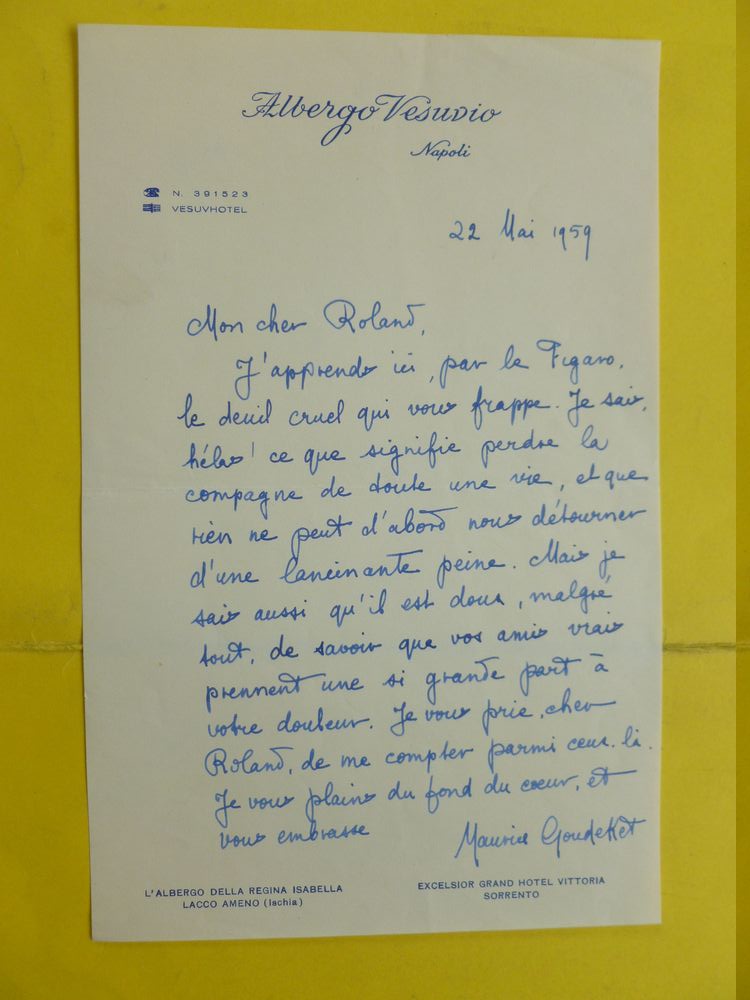 Albergo Vesuvio
Napoli
N. 391523
VESUVHOTEL
22 Mai 1959
Mon cher Roland,
J'apprends ici, par le Figaro,
le deuil cruel qui vous frappe. Je sais,
hélas! ce que signifie perdre la
compagne de toute une vie, et que
rien ne peut d'abord nous détourner
d'une lancinante peine. Mais je
sais aussi qu'il est doux, malgré
tout, de savoir que vos amis vrais
prennent une si grande part à
votre douleur. Je vous prie, cher
Roland, de me compter parmi ceux-là.
Je vous plains du fond du cœur, et
vous embrasse
Maurice Goudeket
L'ALBERGO DELLA REGINA ISABELLA
LACCO AMENO (Ischia)
EXCELSIOR GRAND HOTEL VITTORIA
SORRENTO